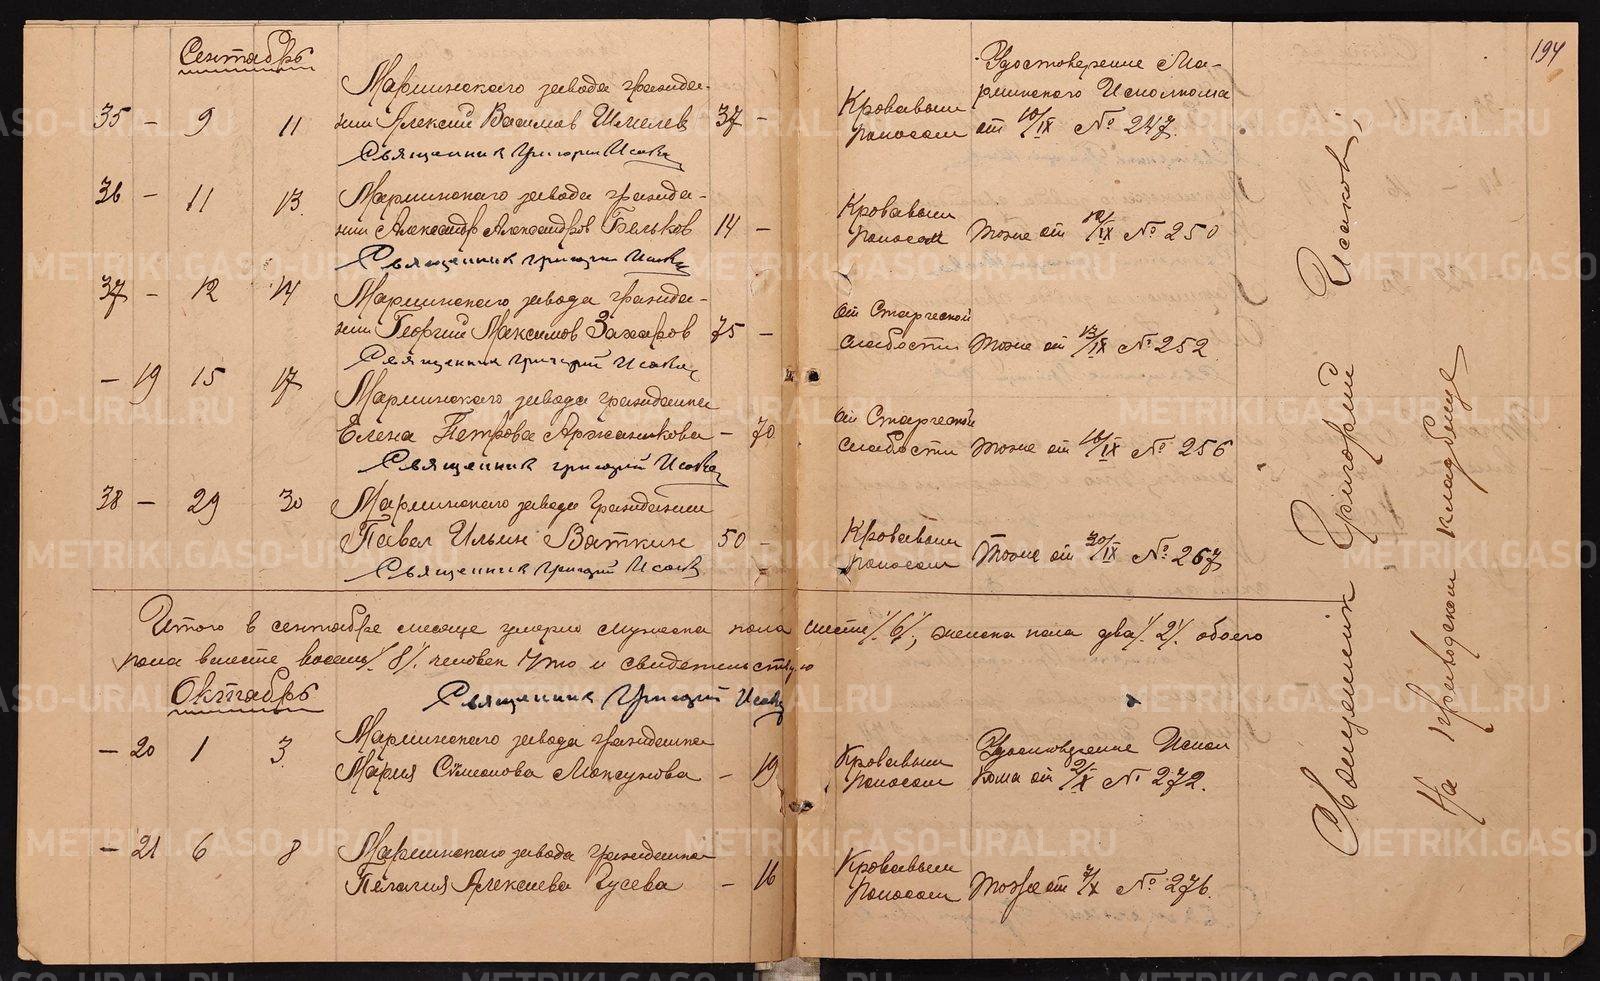 194
Сентябрь
35 — 9 11 Мариинскаго завода гражда-
нин Алексий Васимов Шмелев 37 —
Кровавым поносом
Удостоверение Ма-
риинского Исполкома
от 10/IX № 247.
Священник Григорий Исаков
36 — 11 13. Мариинскаго завода гражда-
нин Александр Александров Бельков 14 —
Кровавым поносом
Тоже от 12/IX № 250
Священник Григорий Исаков
37 — 12 14 Мариинскаго завода гражда-
нин Георгий Максимов Захаров 75 —
от Старческой слабости
Тоже от 13/IX № 252.
Священник Григорий Исаков
— 19 15 17 Мариинскаго завода гражданка
Елена Петрова Аржанникова — 70
от Старческой слабости
Тоже от 16/IX № 256
Священник Григорий Исаков
38 — 29 30 Мариинскаго завода Гражданин
Павел Ильин Вяткин 50 —
Кровавым поносом
Тоже от 30/IX № 267
Священник Григорий Исаков
Итого в сентябре месяце умерло мужеска пола шесть /6/, женска пола два /2/ обоего
пола вместе восемь /8/ человек что и свидетельствую
Священник Григорий Исаков
Октябрь
— 20 1 3. Мариинскаго завода гражданка
Мария Симеонова Моксунова — 19
Кровавым поносом
Удостоверение Испол
кома от 2/X № 272.
— 21 6 8 Мариинскаго завода гражданка
Пелагия Алексиева Гусева — 16
Кровавым поносом
Тоже от 7/X № 276.
Священник Григорий Исаков,
На приходском кладбище
METRIKI.GASO-URAL.RU